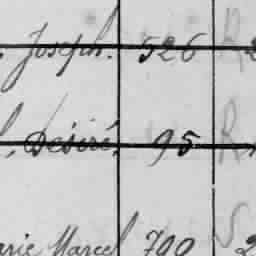 Joseph. 526 R 2
Désiré. 95 R
arie Marcel 700 S 2